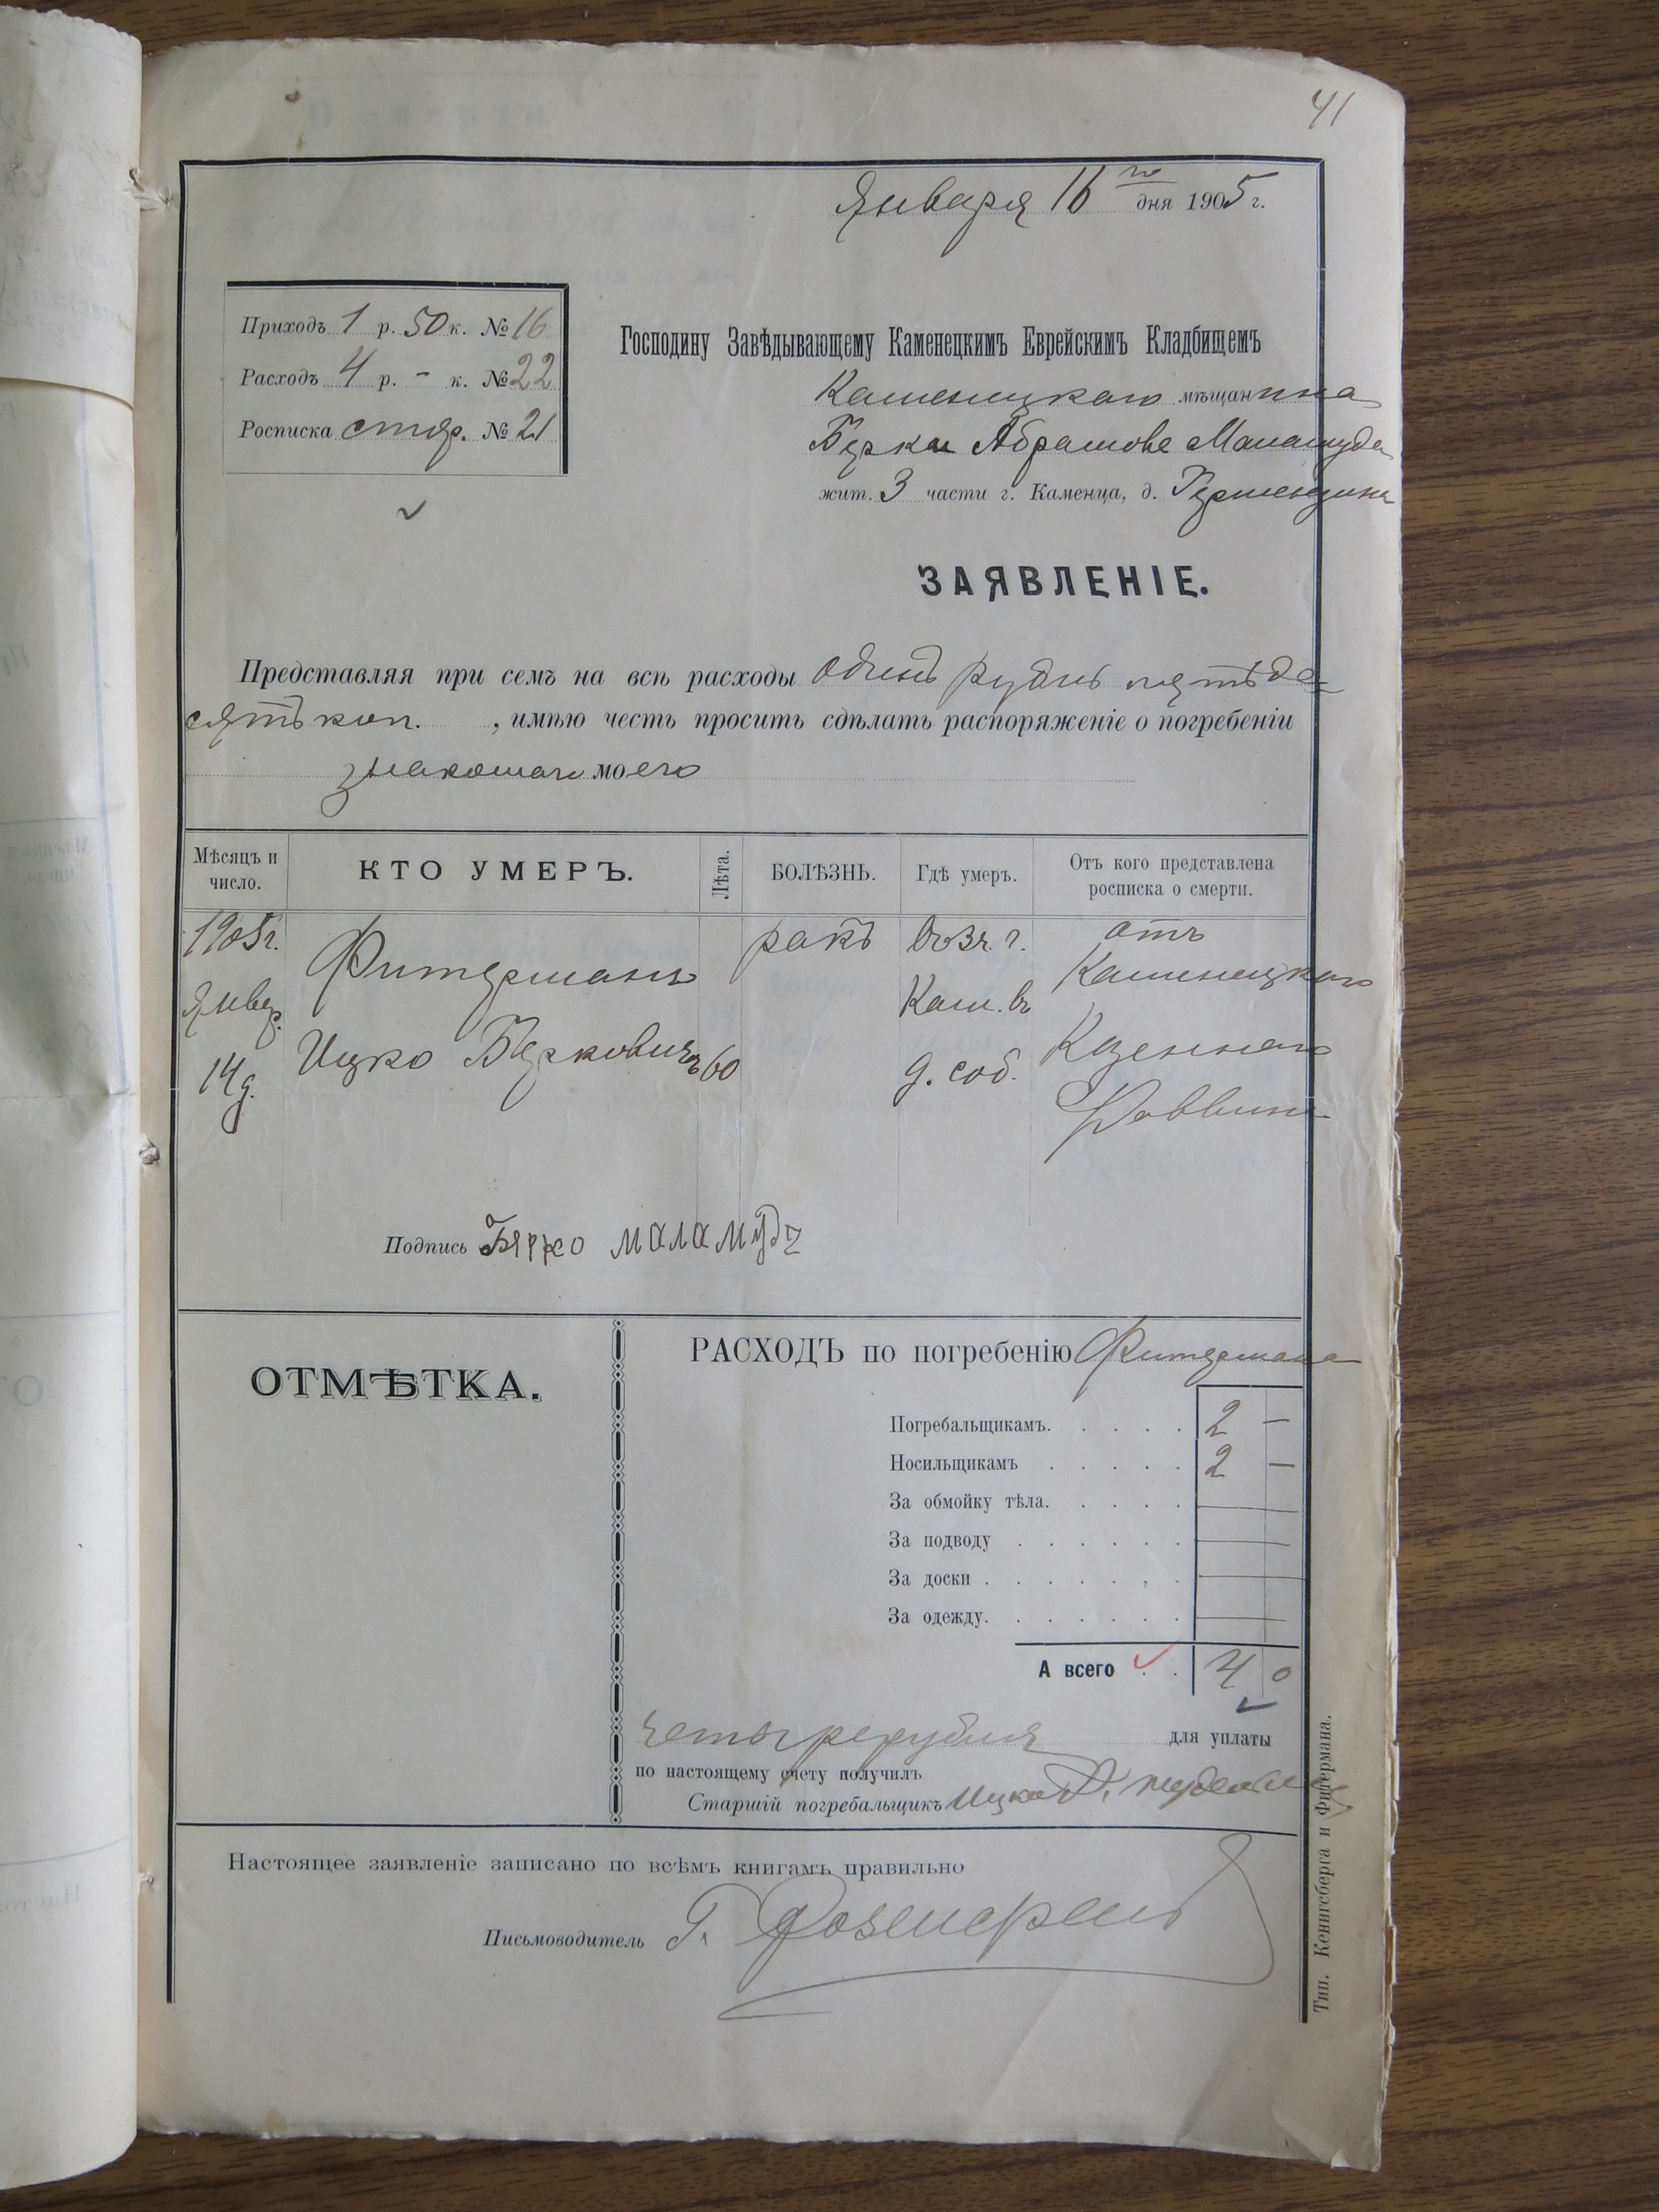 41
Января 16го дня 1905 г.
Приходъ 1 р. 50 к. № 16
Расходъ 4 р. - к. № 22
Росписка стар. № 21
Господину Завѣдывающему Каменецкимъ Еврейскимъ Кладбищемъ
Каменецкаго мѣщанина
Берка Абрамова Маламуда
жит. 3 части г. Каменца, д.
ЗАЯВЛЕНІЕ.
Представляя при семъ на всѣ расходы одинъ рубль пятьде-
сятъ коп. , имѣю честь просить сдѣлать распоряженіе о погребеніи
знакомаго моего
Мѣсяцъ и число.
КТО УМЕРЪ.
Лѣта.
БОЛѢЗНЬ.
Гдѣ умеръ.
Отъ кого представлена росписка о смерти.
1905г. Январ. 14 д.
Фитерманъ
Ицко Берковичъ
60
ракъ
въ 3 ч. г.
Кам. въ
д. соб.
отъ
Каменецкаго
Казеннаго
Раввина
Подпись Берко маламудъ
ОТМѢТКА.
РАСХОДЪ по погребенію Фитермана
Погребальщикамъ. . . . . 2 —
Носильщикамъ . . . . . 2 —
За обмойку тѣла. . . . .
За подводу . . . . . .
За доски . . . . . , .
За одежду. . . . . . .
А всего . . 4 0
четыре рубля для уплаты
по настоящему счету получилъ
Старшій погребальщикъ Ицко
Настоящее заявленіе записано по всѣмъ книгамъ правильно
Письмоводитель Г. Розенкранъ
Тип. Кенигсберга и Фитермана.